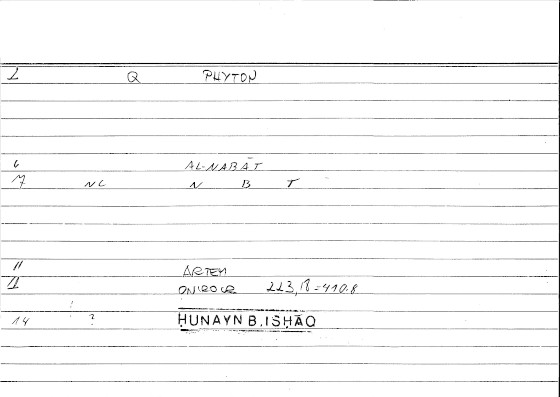 1 Q PHYTON
6 AL-NABĀT
7 NL N B T
11 ARTEM
12 ONIROCR 223,18=410.8
14 ? ḤUNAYN B. ISḤĀQ